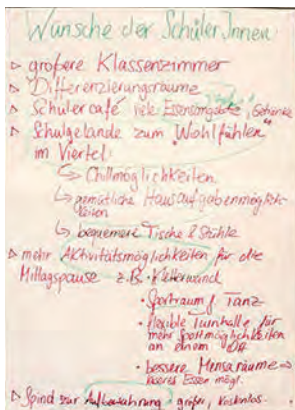 Wünsche der SchülerInnen:
▹ größere Klassenzimmer
▹ Differenzierungsräume
▹ Schülercafé viele Essensangebote, Getränke
▹ Schulgelände zum "Wohlfühlen"
im Viertel:
↳ Chillmöglichkeiten
↳ gemütliche Hausaufgabenmöglichkeiten
↳ bequemere Tische & Stühle
▹ mehr Aktivitätsmöglichkeiten für die
Mittagspause z.B. • Kletterwand
• Sportraum / Tanz
• flexible Turnhalle für
mehr Sportmöglichkeiten
an einem Ort
• bessere Mensaräume ⇒
besseres Essen mögl.
▹ Spind zur Aufbewahrung größer, kostenlos